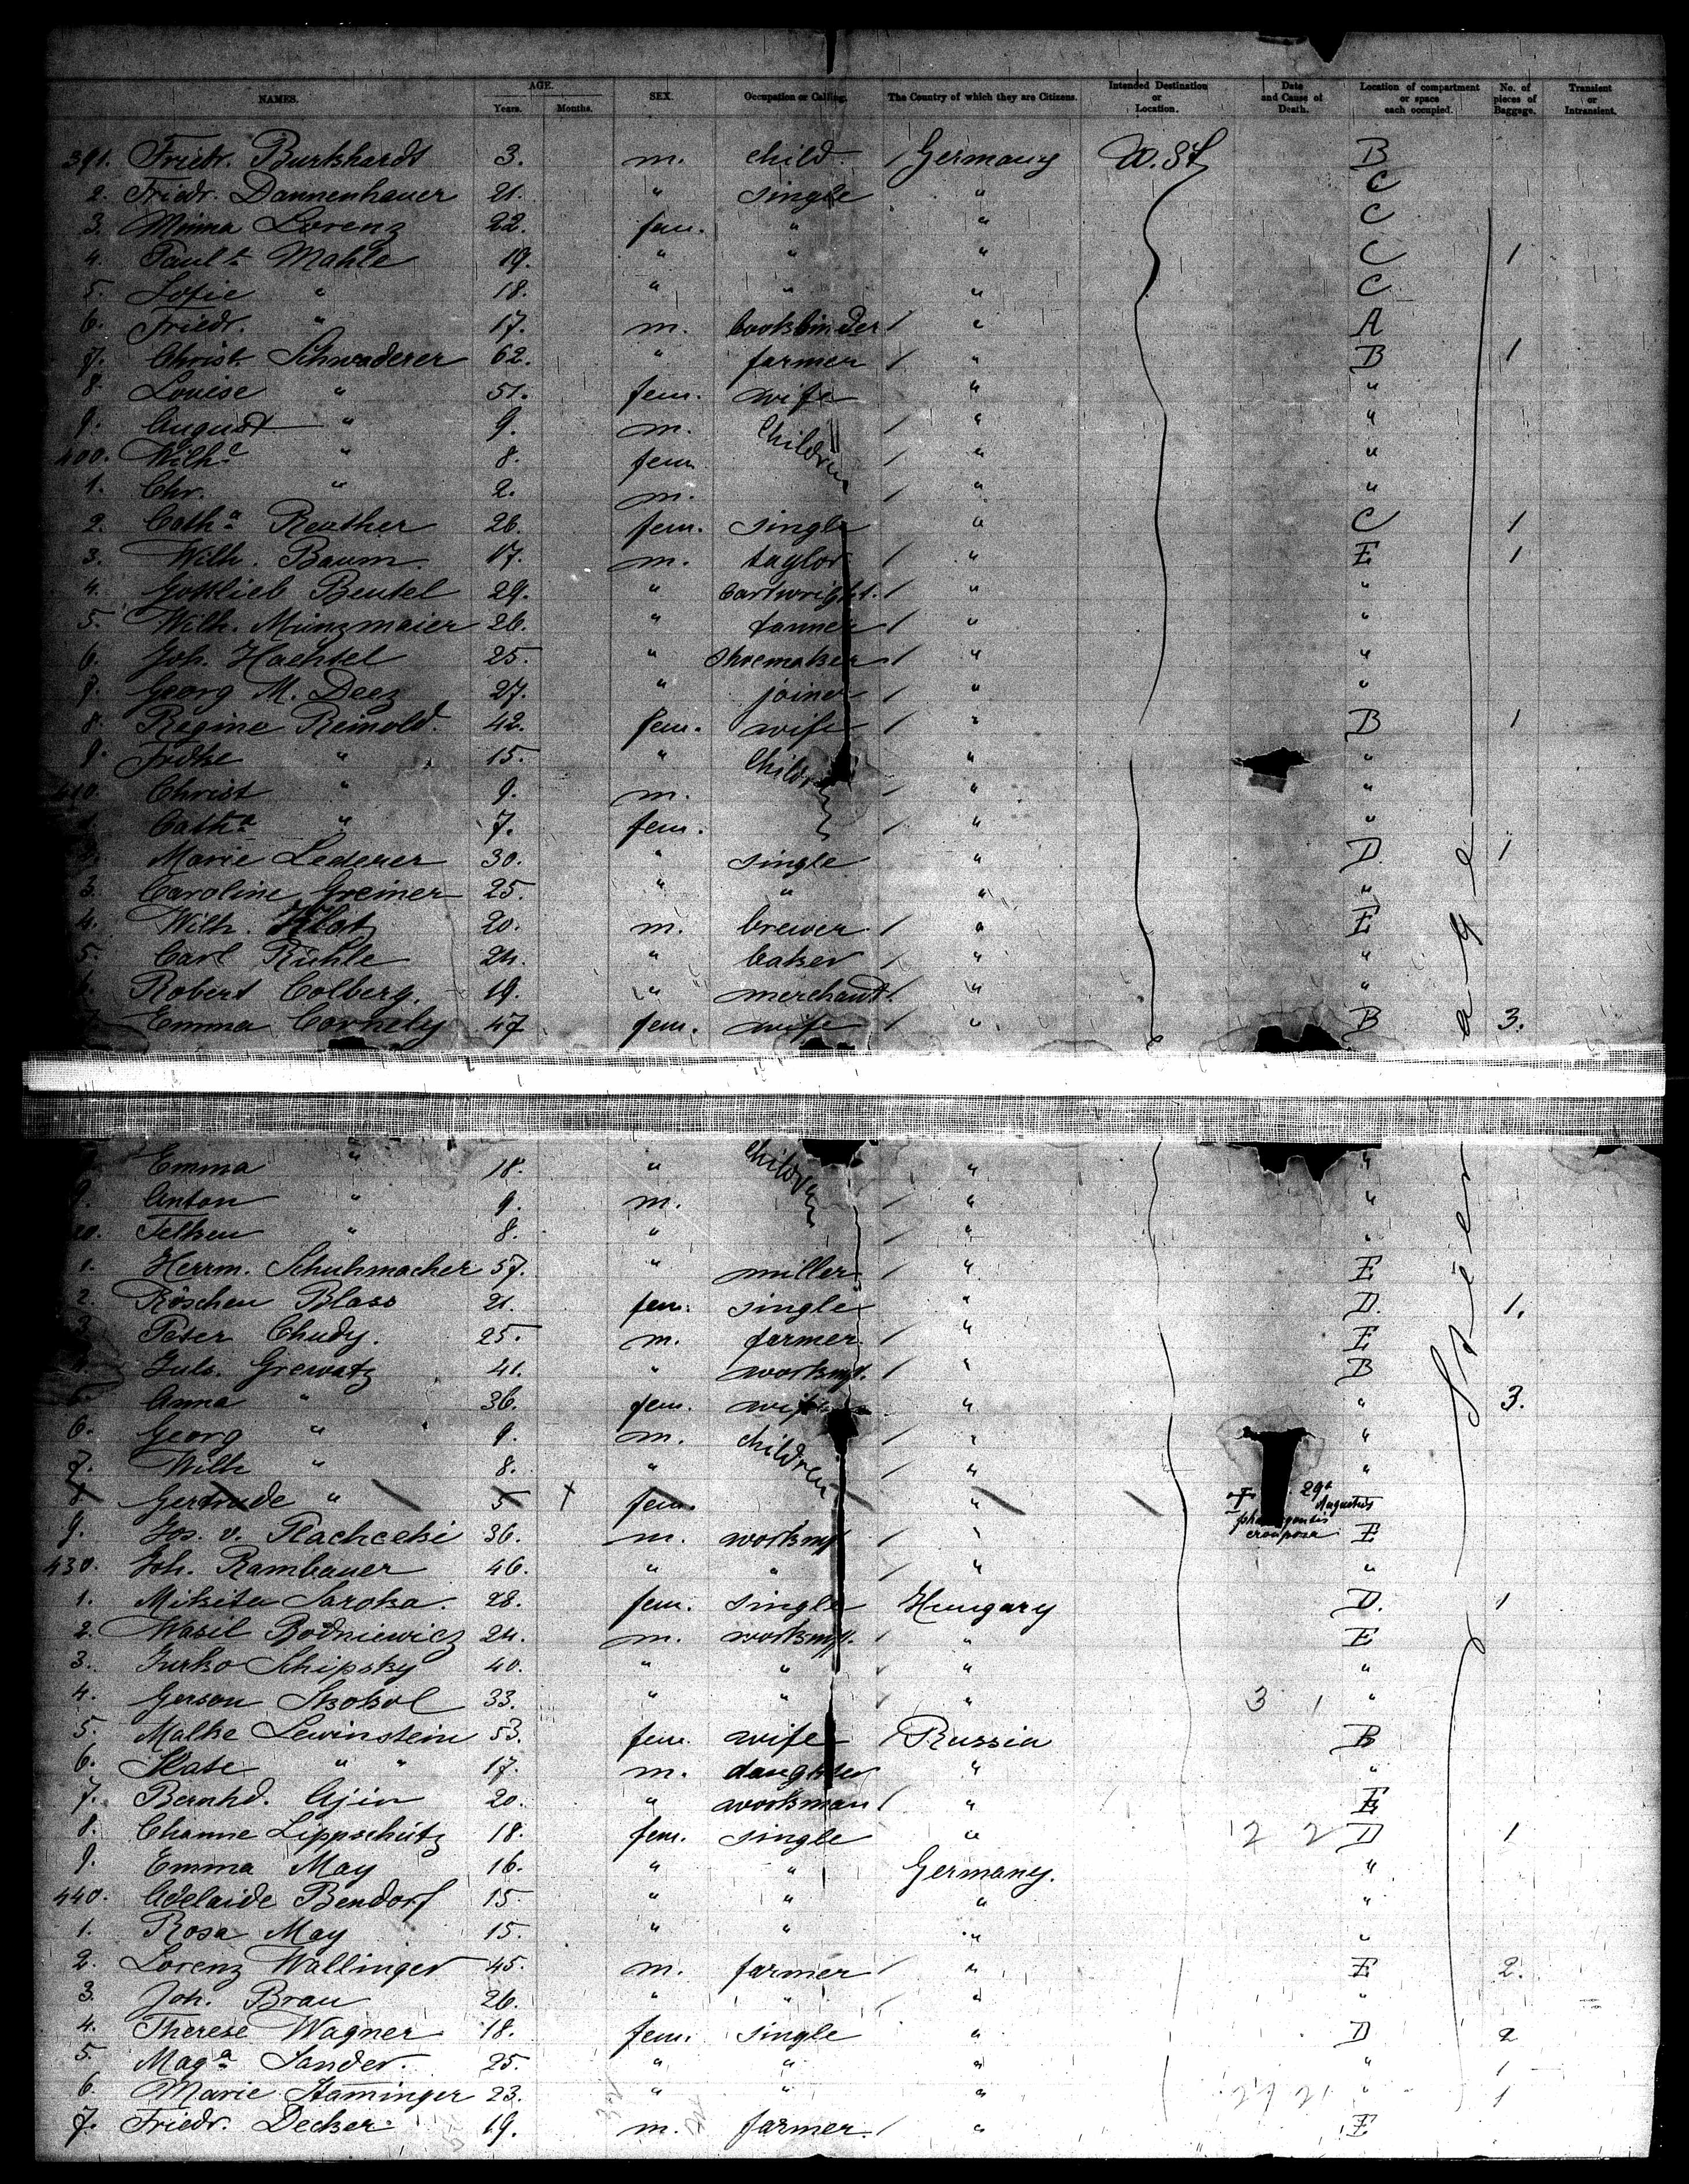 NAMES. AGE. Years. Months. SEX. Occupation or Calling. The Country of which they are Citizens. Intended Destination or Location. Date and Cause of Death. Location of compartment or space each occupied. No. of pieces of Baggage. Transient or Intransient.
391. Friedr. Burkhardt 3. m. child / Germany U. St B
2. Friedr. Dannenhauer 21. " single " C
3. Minna Lorenz 22. fem. " " C
4. Paul Mahle 19. " " " C 1
5. Sofie " 18. " " " C
6. Friedr. " 17. m. bookbinder / " A
7. Christ. Schwaderer 62. " farmer / " B 1
8. Louise " 51. fem. wife " "
9. August " 9. m. Children / " "
400. Wilhe " 8. fem / " "
1. Chr. " 2. m. / " "
2. Catha Reuther 26. fem. single " C 1
3. Wilh. Baum 17. m. taylor / " E 1
4. Gottlieb Beutel 29. " Cartwright. / " "
5. Wilh. Münzmaier 26. " tanner / " "
6. Joh. Haehsel 25. " Shoemaker / " "
7. Georg M. Deez 27. " joiner / " "
8. Regine Reinold. 42. fem. wife / " B 1
9. Frdke " 15. " Children " "
410. Christ " 9. m. / " "
1. Catha " 7. fem. / " "
2. Marie Lederer 30. " single " D. 1
3. Caroline Greiner 25 " " " "
4. Wilh. Klotz 20. m. brewer / " E
5. Carl Kühle 24. " baker / " "
6. Robert Colberg. 19. " merchant / " "
7. Emma Cornely 47 fem. wife / " B 3.
Emma " 18. " Children " "
9. Anton " 9. m. / " "
20. " 8. " / " "
1. Herrm. Schuhmacher 57. " miller / " E
2. Röschen Blass 21. fem. single " D. 1.
3. Peter Chudy. 25. m. farmer / " E
4. Juls. Grewatz 41. " / " B
5. Anna " 36. fem. wife " " 3.
6. Georg " 9. m. children / " "
7. Wilh " 8. " / " "
8. Gertrude " 5 fem. " 29t Augustus
9. Jos. v. 36. m. / " E
430. Joh. Rambauer 46. " " / " "
1. Mikita Saroka. 28. fem. single Hungary D. 1
2. Wasil Rodniewicz 24. m. / " E
3. Jurko Schipsky 40. " " / " "
4. Gerson Skokol 33. " " / " 3 1 "
5. Malke Lewinstein 53. fem. wife / Russia B
6. " " 17. m. daughter " "
7. Bernhd. Ajin 20. " workman / " E
8. Channe Lippschütz 18. fem. single " 2 2 D 1
9. Emma May 16. " " Germany. "
440. Adelaide Bendorf 15 " " " "
1. Rosa May 15. " " " "
2. Lorenz Wallinger 45. m. farmer / " E 2.
3. Joh. Brau 26. " " / " "
4. Therese Wagner 18. fem. single " D 2
5. Maga Sander. 25. " " " " 1
6. Marie Haminger 23. " " " " 1
7. Friedr. Decker 19. m. farmer. / " E